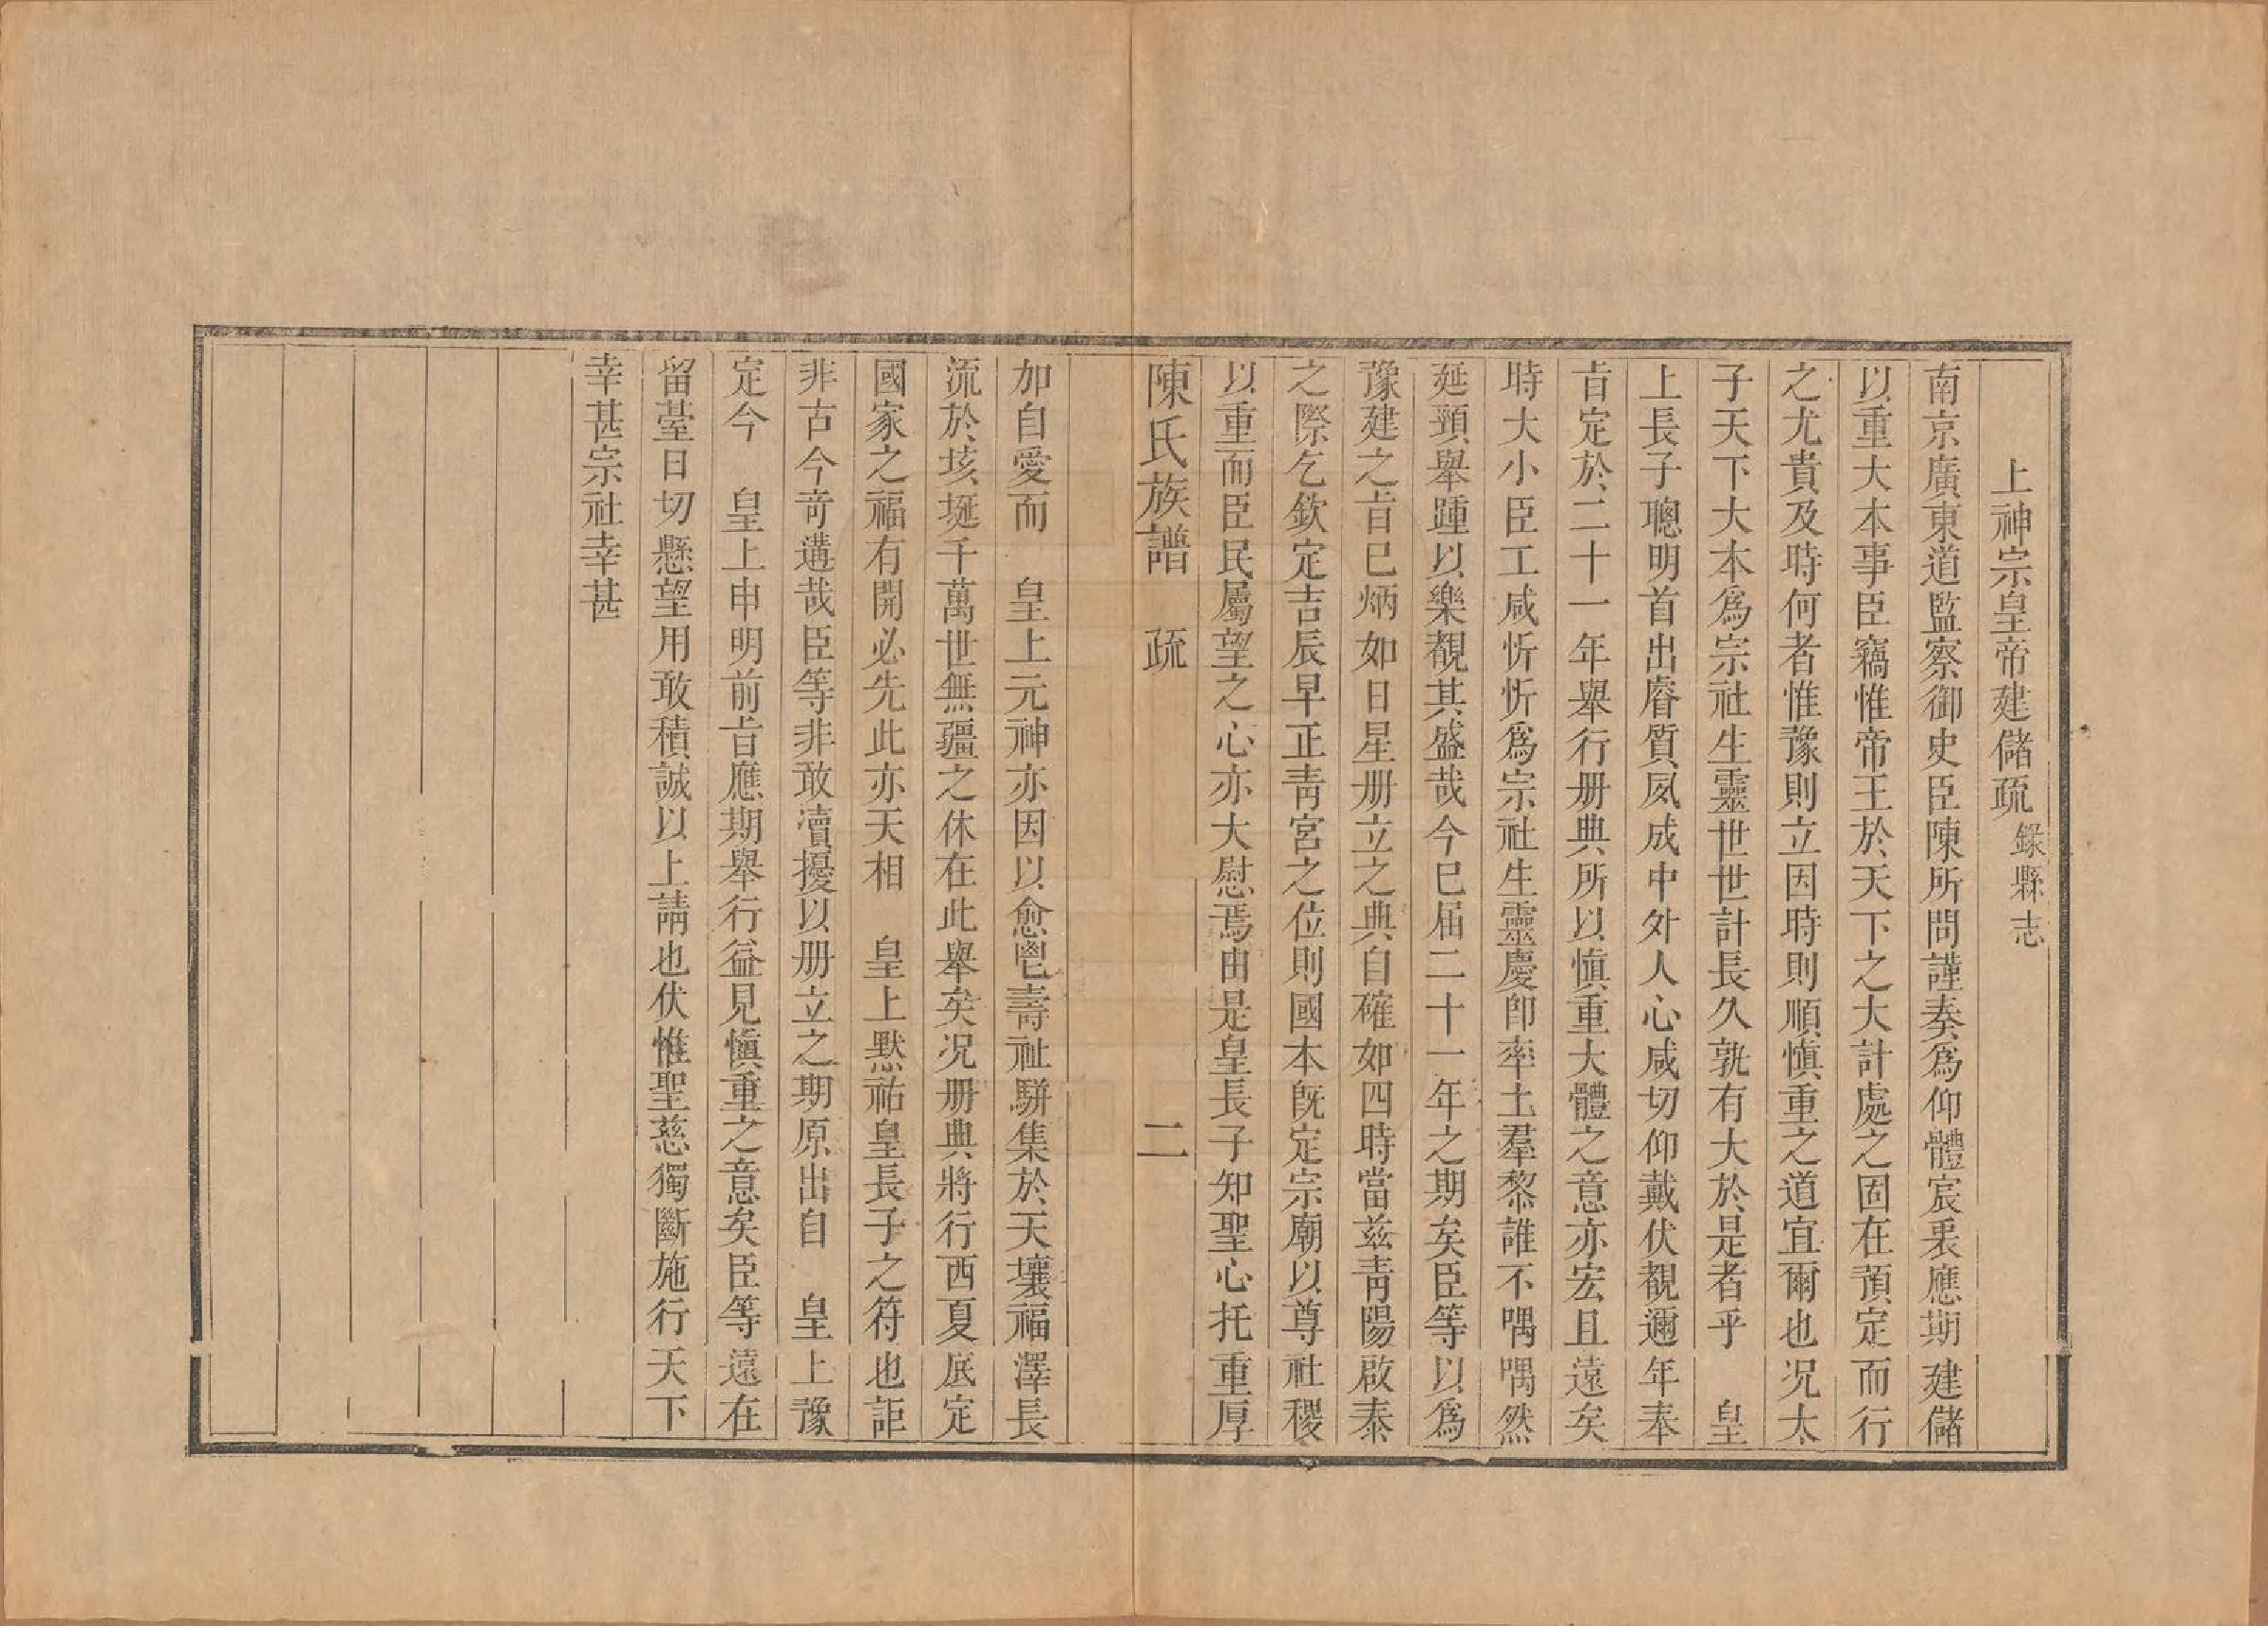 上神宗皇帝建儲疏錄縣志
南京廣東道監察御史臣陳所問謹奏爲仰體宸衷應期建儲
以重大本事臣竊惟帝王於天下之大計處之固在預定而行
之尤貴及時何者惟豫則立因時則順愼重之道宜爾也况太
子天下大本爲宗社生靈世世計長久孰有大於是者乎　皇
上長子聰明首出睿質夙成中外人心咸切仰戴伏覩邇年奉
旨定於二十一年舉行册典所以愼重大體之意亦宏且遠矣
時大小臣工咸忻忻爲宗社生靈慶卽率土羣黎誰不喁喁然
延頸舉踵以樂覩其盛哉今已届二十一年之期矣臣等以爲
豫建之旨已炳如日星册立之典自確如四時當兹靑陽啟泰
之際乞欽定吉辰早正靑宮之位則國本旣定宗廟以尊社稷
以重而臣民屬望之心亦大慰焉由是皇長子知聖心托重厚
陳氏族譜　疏　二
加自愛而　皇上元神亦因以愈鬯壽祉駢集於天壤福澤長
流於垓埏千萬世無疆之休在此舉矣况册典將行西夏底定
國家之福有開必先此亦天相　皇上默祐皇長子之符也詎
非古今奇遘哉臣等非敢瀆擾以册立之期原出自　皇上豫
定今　皇上申明前旨應期舉行益見愼重之意矣臣等遠在
留薹日切懸望用敢積誠以上請也伏惟聖慈獨斷施行天下
幸甚宗社幸甚